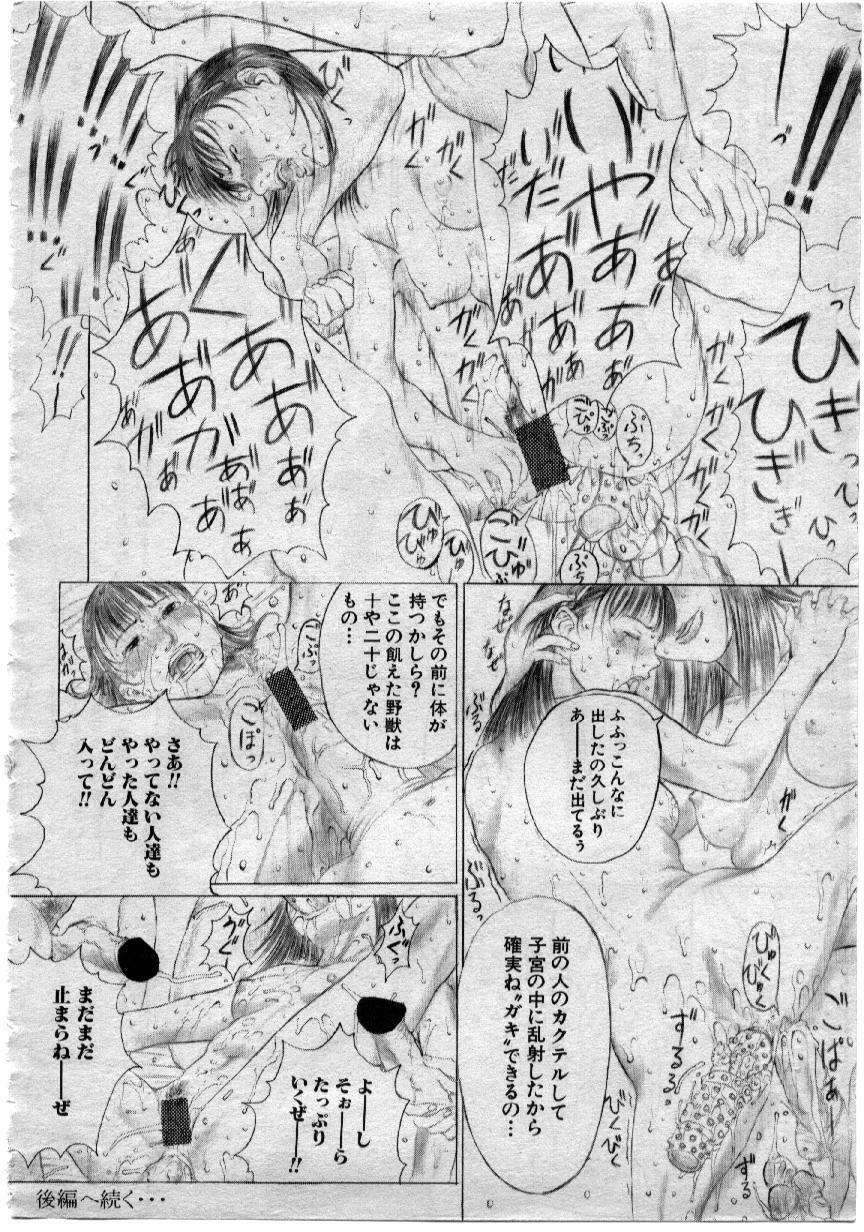 びくっ
がく
がく
いだ
いやああぁ
あああぁ
ひきっ
ひぎぎ
ひっ
ひっ
ぐああぁぁ
あああがああぁぁ
があぁ
がくがく
がくがく
がくがく
ごぴゅ
ぶちっ
びゅびゅ
びゅ
なぜ
なぜ
ぶる
ふふっこんなに
出したの久しぶり
あーーまだ出てるぅ
がく
ぶるっ
前の人のカクテルして
子宮の中に乱射したから
確実ね〝ガキ〟できるの…
びゅくびゅく
ごぱぁー
ずるる
びくびく
ずる
でもその前に体が
持つかしら?
ここの飢えた野獣は
十や二十じゃない
もの…
ごぷっ
ごぽっ
さあ!!
やってない人達も
やった人達も
どんどん
入って!!
ふぐっ
よーーし
そぉーーら
たっぷり
いくぜーー!!
まだまだ
止まらねーーぜ
後編へ続く・・・